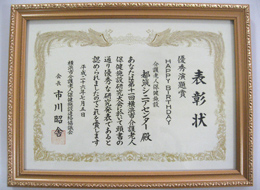 表彰状
優秀演題賞
HAPPY BIRTHDAY
介護老人保健施設
都筑シニアセンター 殿
あなたは第十一回横浜市介護老人
保健施設研究大会に於て頭書の
通り優秀な研究発表であると
認められましたのでこれを賞します
平成二十六年七月三日
会長 市川昭